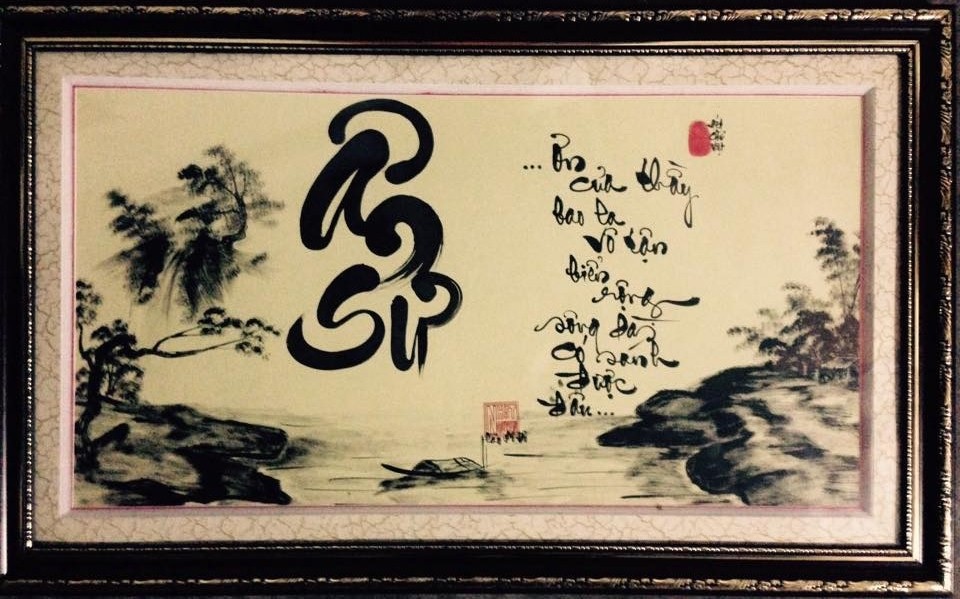 Ân
Sư
... Ơn
của thầy
bao la
vô tận
biển
rộng
sông dài
sánh
được
đâu...